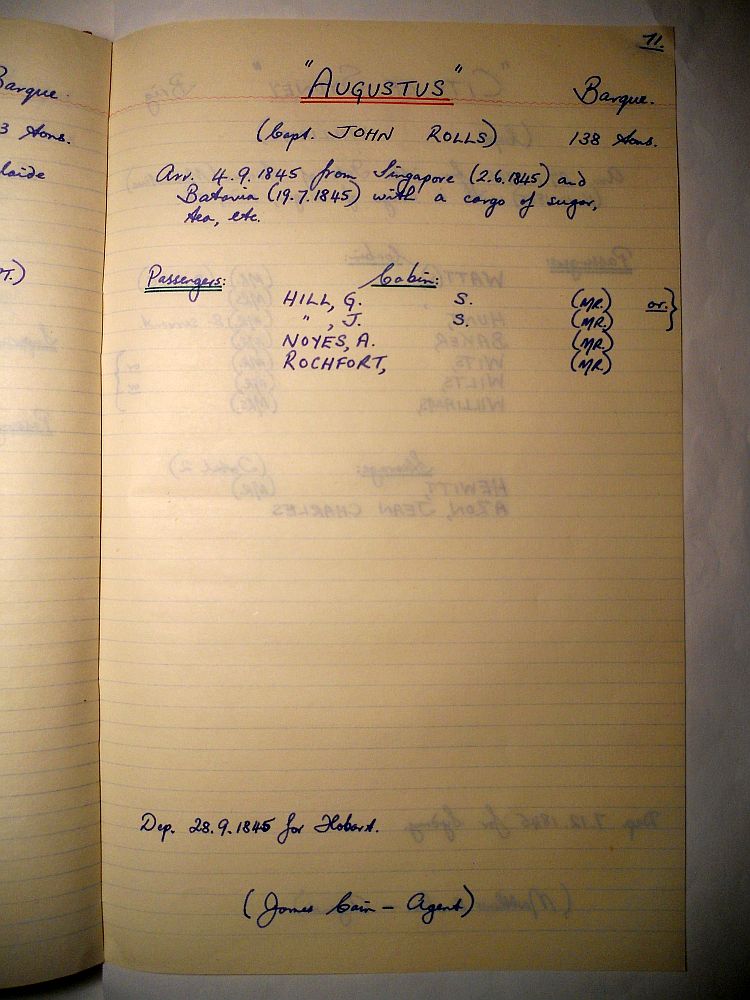 71.
Barque.
3 tons.
laide
T.)
"AUGUSTUS" Barque.
(Capt. JOHN ROLLS) 138 tons.
Arr. 4.9.1845 from Singapore (2.6.1845) and
Batavia (19.7.1845) with a cargo of sugar,
tea, etc.
Passengers: Cabin:
HILL, G. S. (MR.) or.}
" , J. S. (MR.)
NOYES, A. (MR.)
ROCHFORT, (MR.)
Dep. 28.9.1845 for Hobart.
(James Cain - Agent)